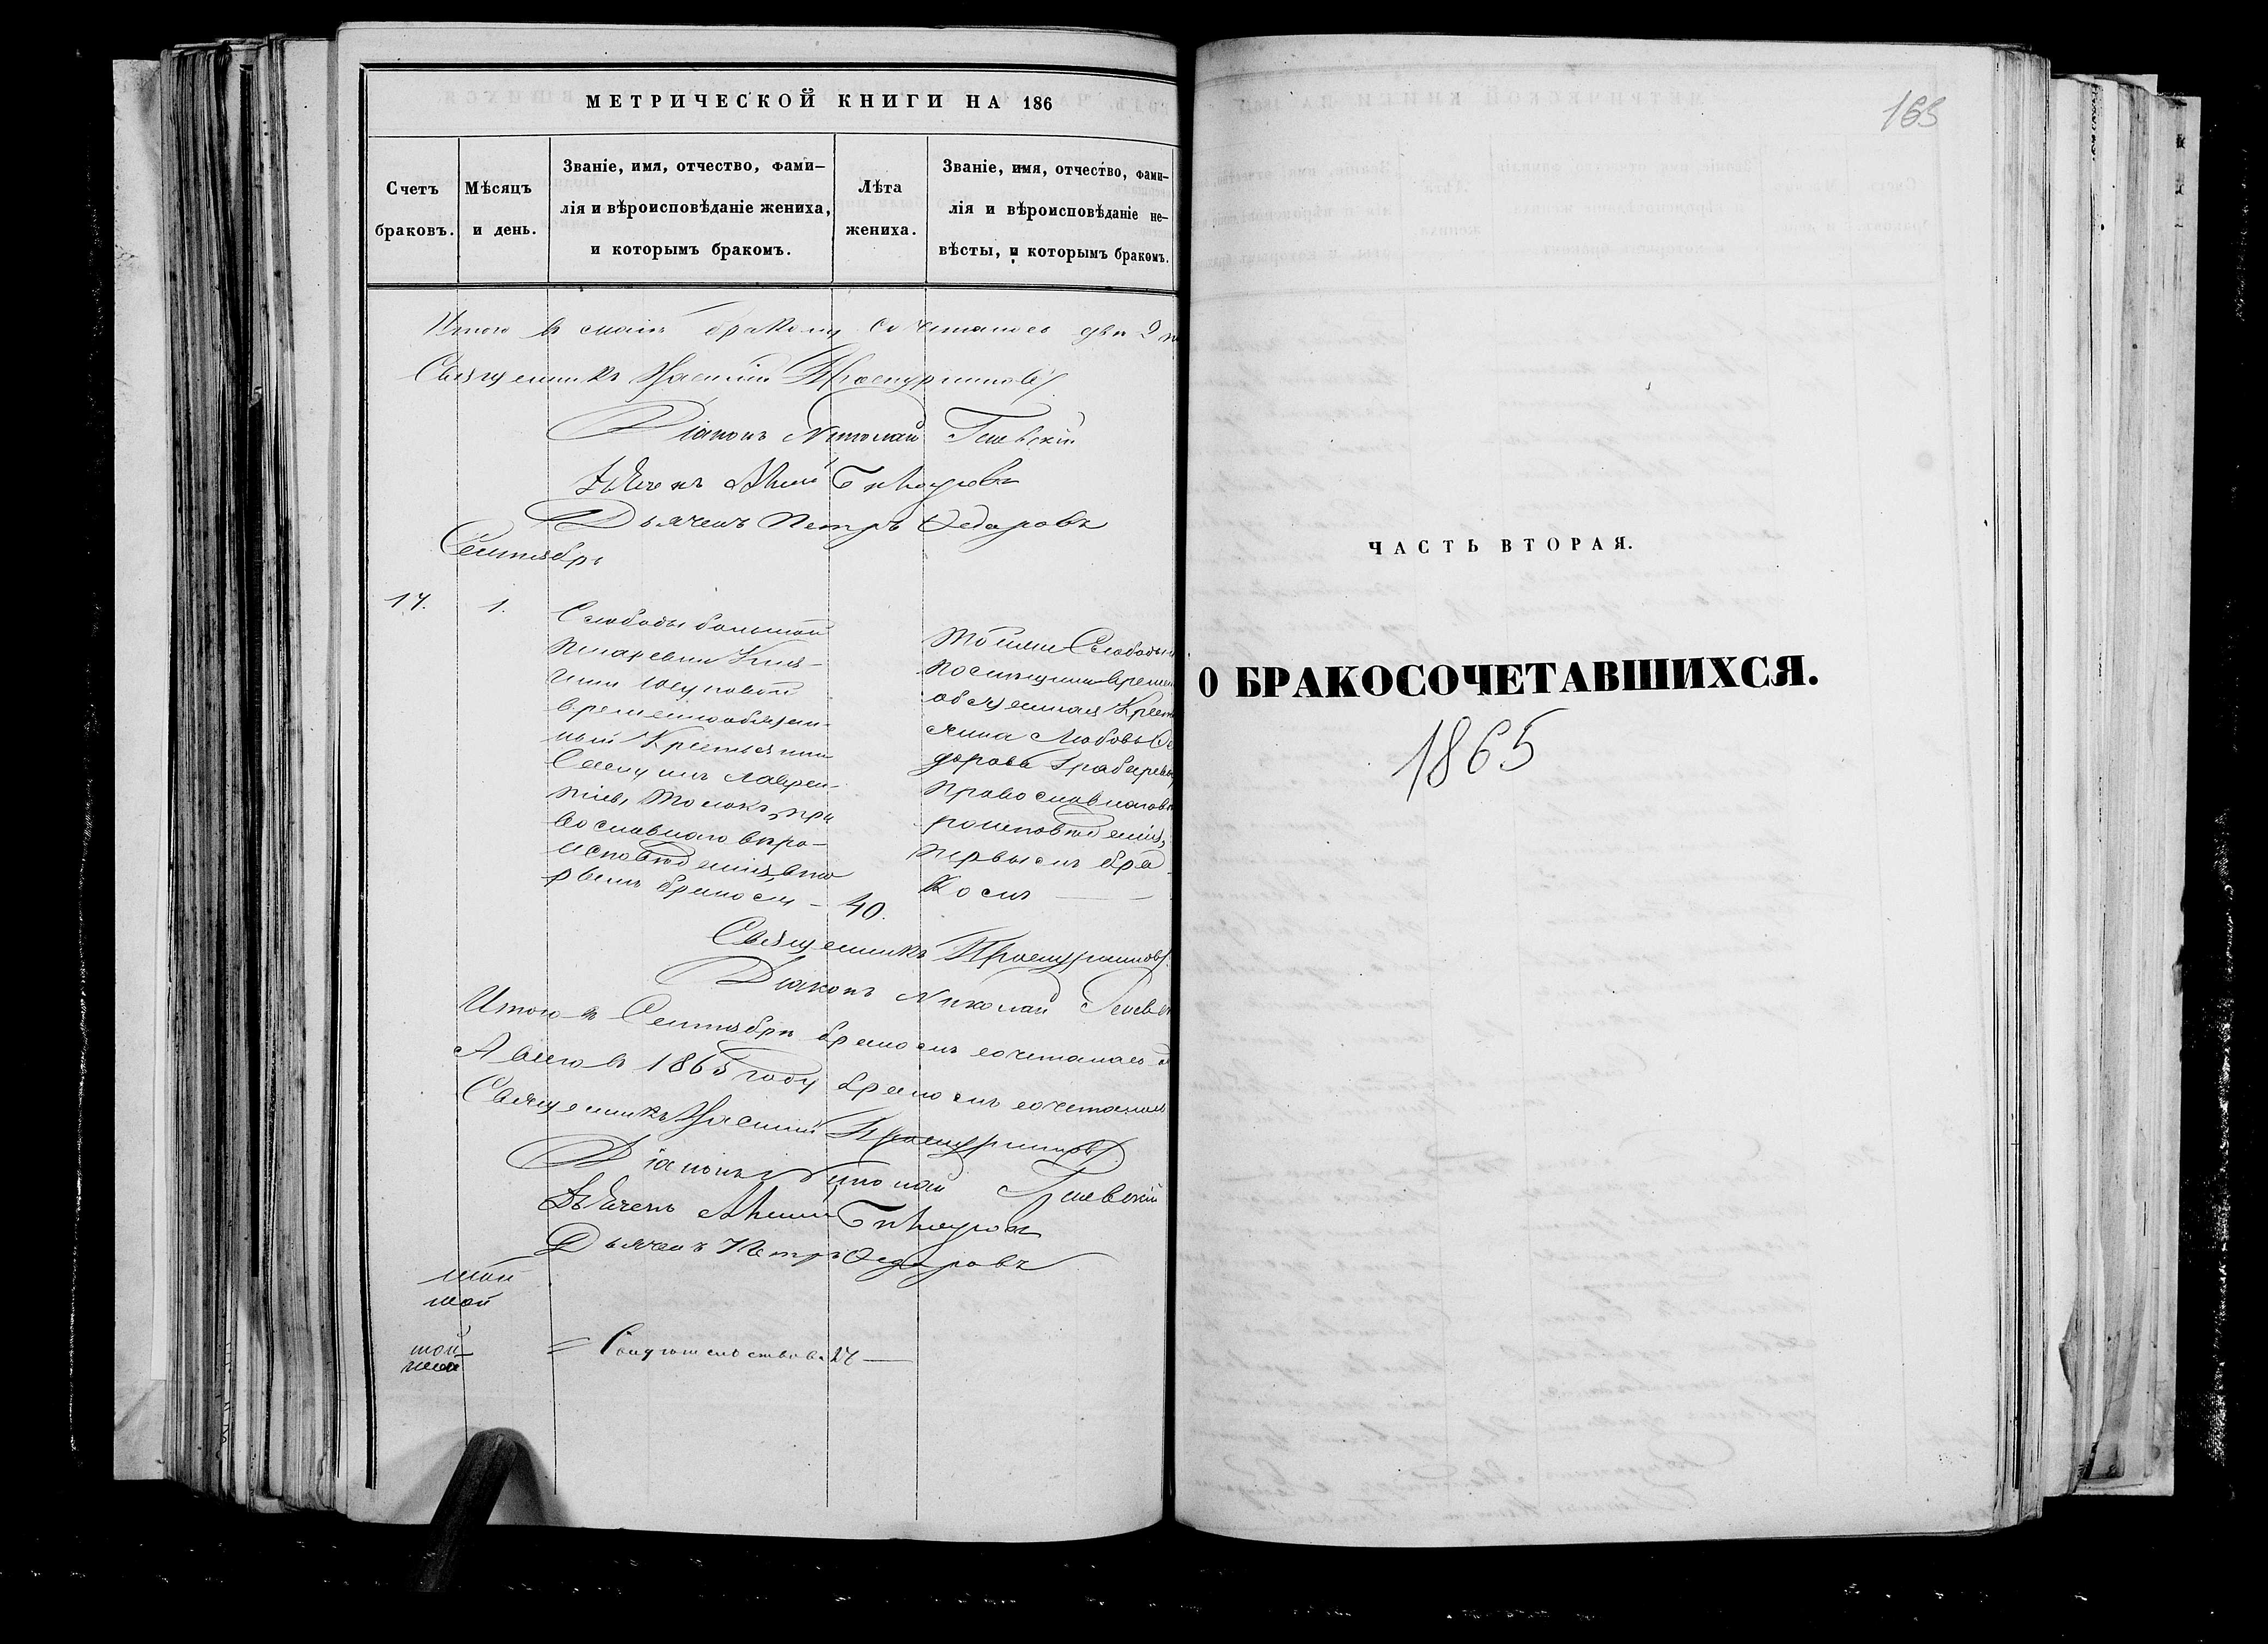 МЕТРИЧЕСКОЙ КНИГИ НА 186
Счетъ браковъ.
Мѣсяцъ и день.
Званіе, имя, отчество, фами-
лія и вѣроисповѣданіе жениха,
и которымъ бракомъ.
Лѣта жениха.
Званіе, имя, отчество, фами-
лія и вѣроисповѣданіе не-
вѣсты, и которымъ бракомъ.
Итого в бракомъ сочеталось два 2
Священникъ
Діаконъ Николай
Дьячекъ
Дьячекъ Петръ Ѳедоровъ
Сентябрь
17. 1.
Слободы большой
Писаревки Кня-
гини Юсуповой
временнообязан-
ный Крестьянинъ
Лаврен-
тіевъ пра
вославнаго вѣро-
исповѣданія вто
рымъ бракомъ – 40.
Тойже Слободы
времен
обязанная Крест
янка Любовь Ѳе
дорова
православнаго вѣ
роисповѣданія,
первымъ бра
комъ
Священникъ
Діаконъ Николай
Итого в Сентябрѣ бракомъ сочеталась
А всего въ 1865 году бракомъ сочеталось
Священникъ
Діаконъ Николай
Дьячекъ
Дьячекъ Петръ Ѳедоровъ
165
ЧАСТЬ ВТОРАЯ.
О БРАКОСОЧЕТАВШИХСЯ.
1865